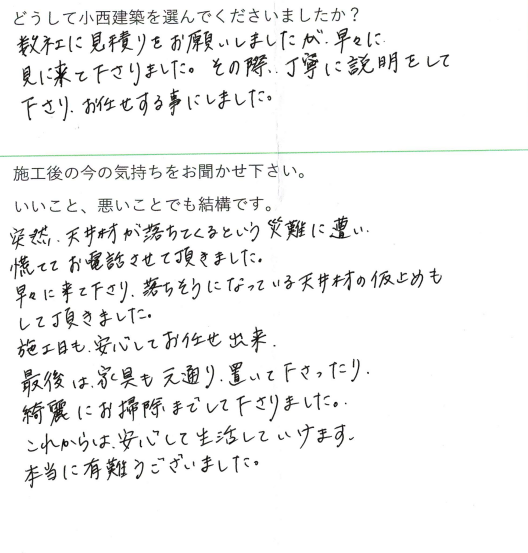 どうして小西建築を選んでくださいましたか？
数社に見積りをお願いしましたが、早々に
見に来て下さりました。その際、丁寧に説明をして
下さり、お任せする事にしました。
施工後の今の気持ちをお聞かせ下さい。
いいこと、悪いことでも結構です。
突然、天井材が落ちてくるという災難に遭い、
慌ててお電話させて頂きました。
早々に来て下さり、落ちそうになっている天井材の仮止めも
して頂きました。
施工日も、安心してお任せ出来、
最後は、家具も元通り、置いて下さったり、
綺麗にお掃除までして下さりました。
これからは、安心して生活していけます。
本当に有難うございました。